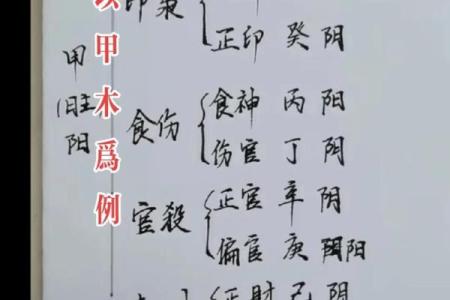 以甲木爲例
甲
旺
阳
印枭
正印 癸 阴
食伤
食神 丙 阳
伤官 丁 阴
官殺
正官 辛 阴
偏官 庚 阳
正財 己 阴